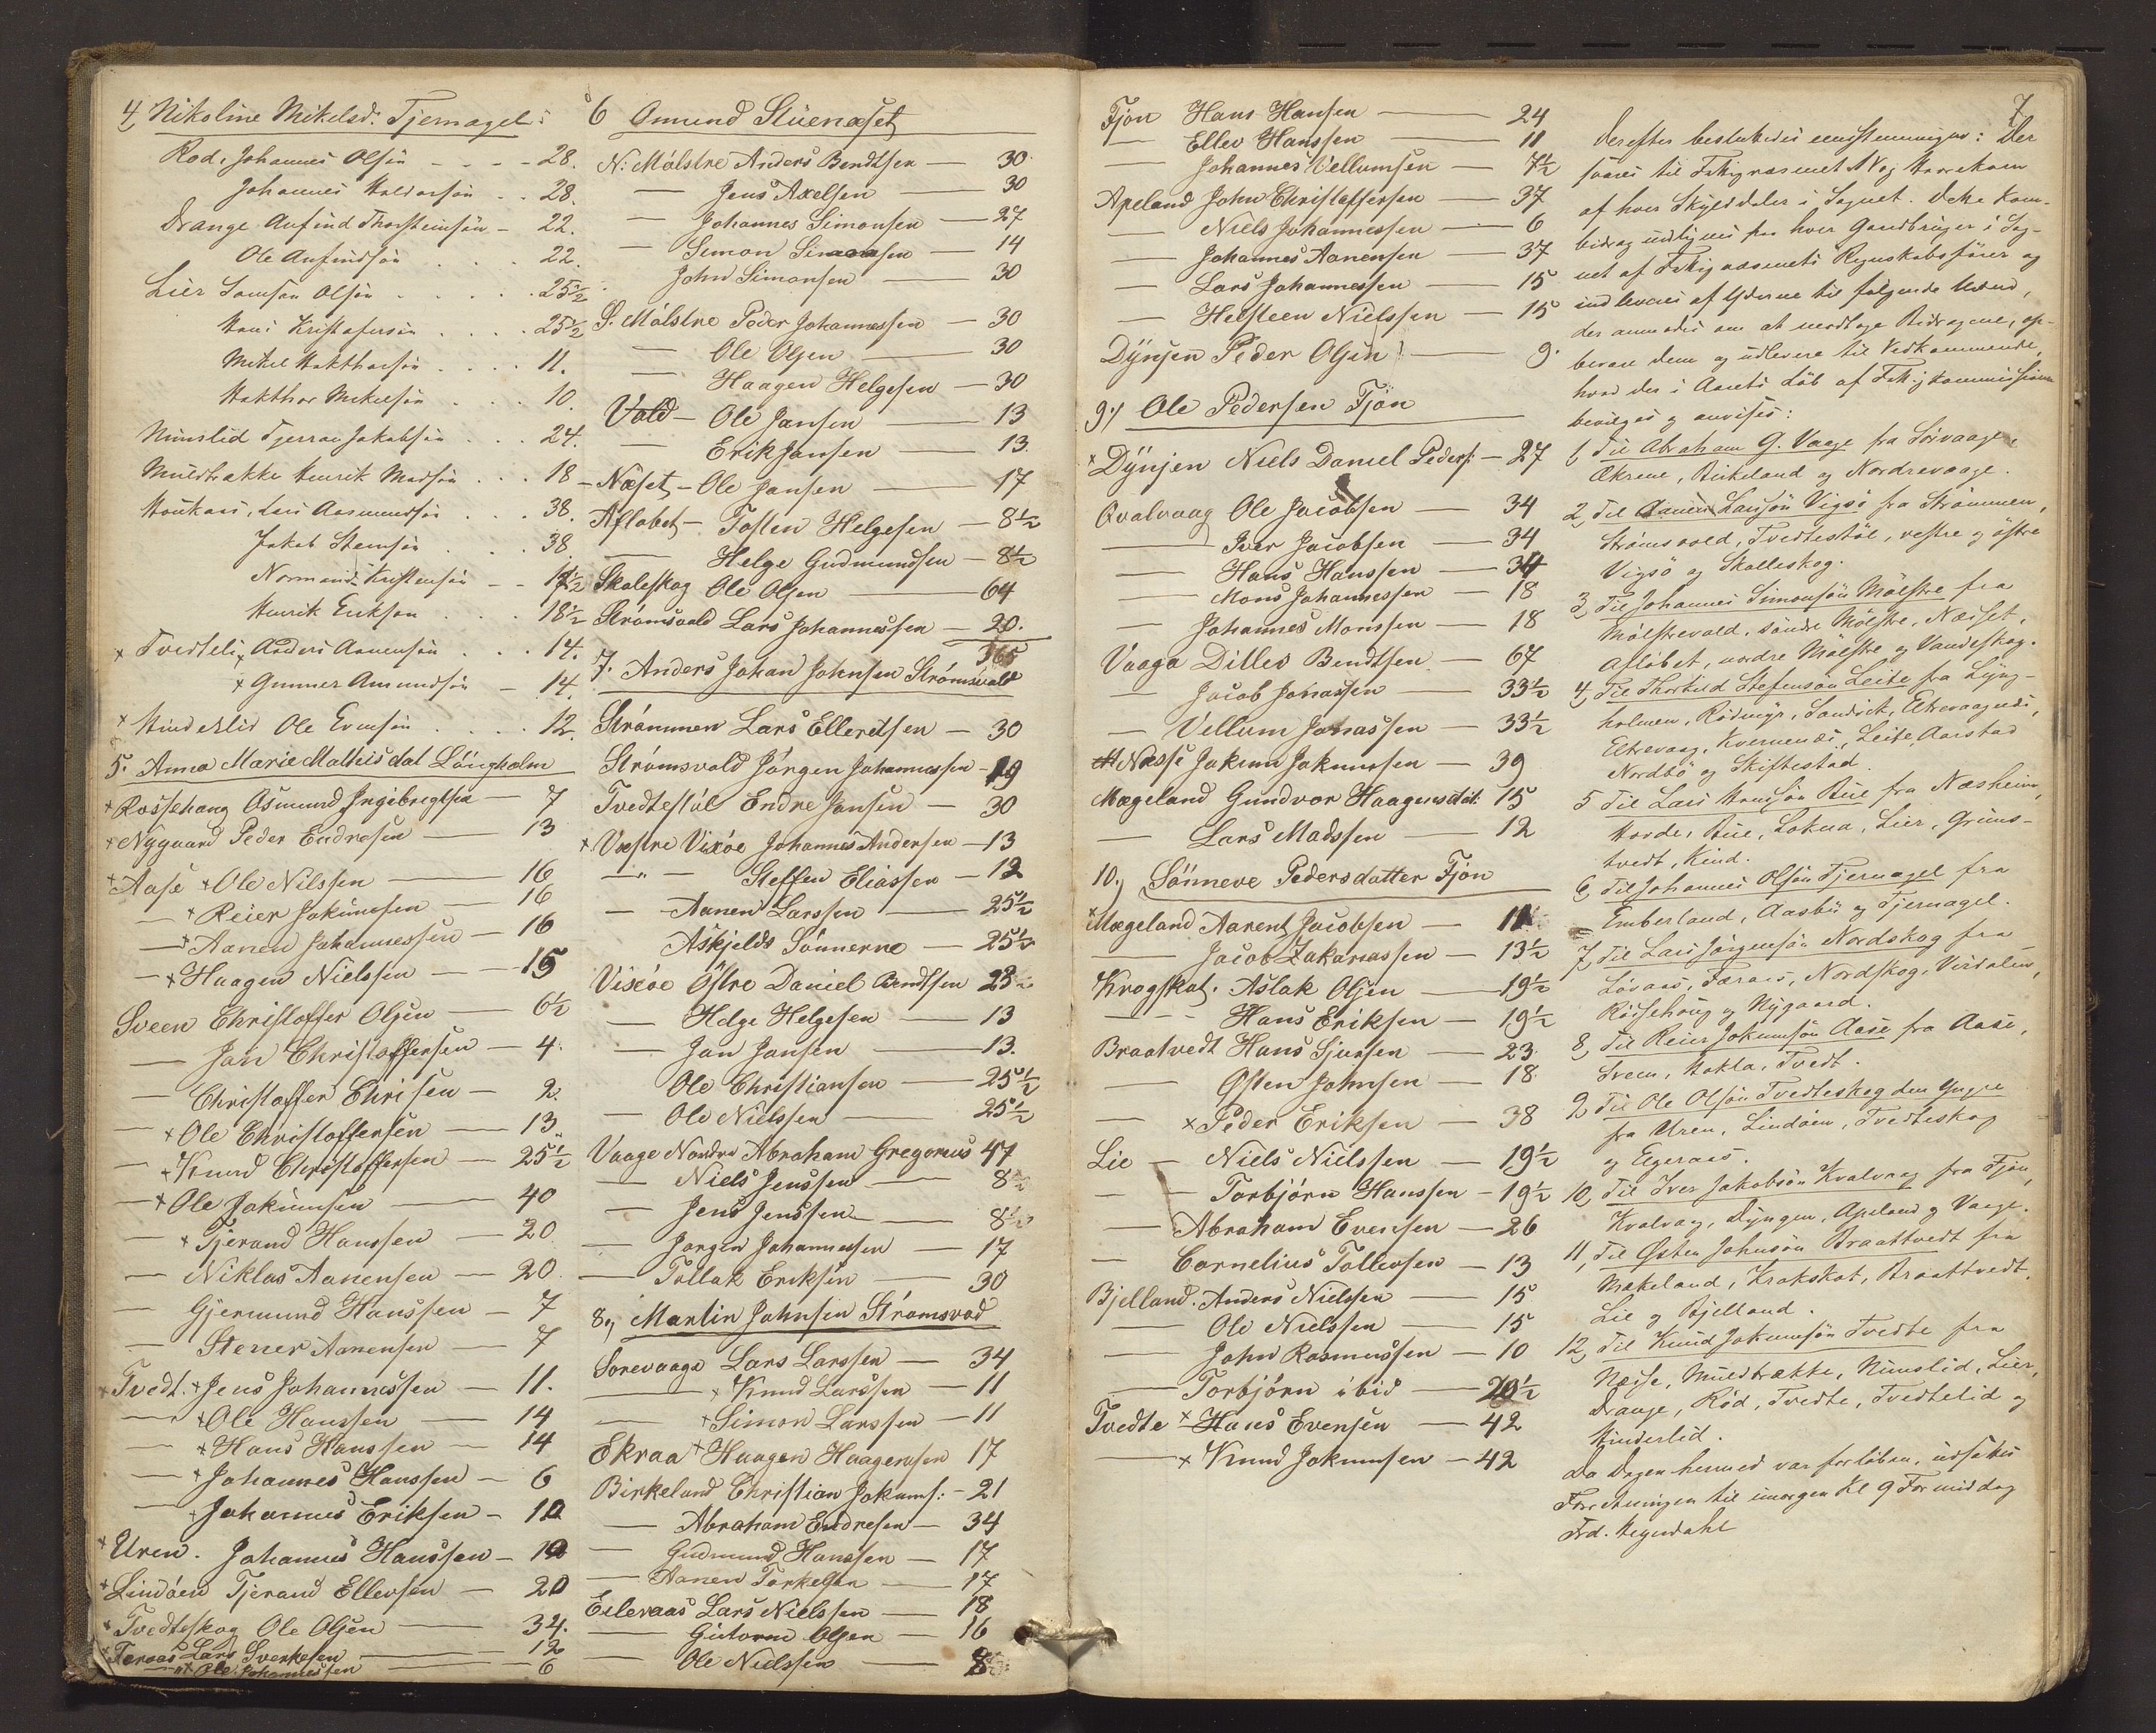 4, Nikoline Mikelsd. Tjernagel:
Röd, Johannes Olsön - - - 28.
Johannes Haldorsön . . 28.
Drange Anfind Thorsteinsön - 22.
Ole Anfindsön . . . 22.
Lier Samson Olsön . . . . 25½
Hans Kristofersön . . . . 25½
Mikel Hakthorsön . . . . 11.
Hakthor Mikelsön . . . 10.
Nimslid Tjerran Jakobsön . . . 24.
Muldbrække Henrik Madsön . . . 18
Houkaas, Lars Aasmundsön . . . 38.
Jakob Steensön . . . 38
Normand Kristensön - -
Henrik Eriksen . . . 18½
x Tvedteli, Anders Aanensön . . . 14.
x Gunner Amundsön - 14.
x Hinderlid Ole Evensön . . . . 12.
5. Anna Marie Mathisdat Löngholm
x Rossehaug Osmund Ingebregtsen — 7
x Nygaard Peder Endresen — 13
x Aase x Ole Nilssen — 16
— x Reier Jokumsen — 16
— x Aanen Johannessen — 16
— x Haagen Nielssen — 15
Sveen Christoffer Olsen — 6½
— Jan Christoffersen — 4.
— Christoffer Chrisen — 2.
— x Ole Christoffersen — 13
— x Knud Christoffersen — 25½
— x Ole Jokumsen — 40
— x Tjerand Hanssen — 20
— Niklas Aanensen — 20.
— Gjermund Hanssen — 7
— Stener Aanensen — 7
x Tvedt. x Jens Johannessen — 11.
— x Ole Hanssen — 14
— x Hans Hanssen — 14
— x Johannes Hanssen — 6
— x Johannes Eriksen — 10
x Uren. Johannes Hanssen — 10
x Lindöen Tjerand Ellevsen — 20
x Tvedteskog Ole Olsen — 34.
x Feraas Lars Sverkesen — 12
— x Ole Johannessen — 6
6 Omund Stuenæset
N: Mölstre Anders Bendtsen — 30
— Jens Axelsen — 30
— Johannes Simonsen — 27
— Simon Simonsen — 14
John Simonsen — 30
S. Mölstre Peder Johannessen — 30
— Ole Olsen — 30
— Haagen Helgesen — 30
Vold — Ole Jansen — 13
— Erik Jansen — 13.
Næset — Ole Jansen — 17
Aflöbet — Tosten Helgesen — 8½
— Helge Gudmundsen — 8½
Skoleskog Ole Olsen — 64
Strömsvold Lars Johannessen — 20.
365
7. Anders Johan Johnsen Strömsvold
Strömmen Lars Ellertsen — 30
Strömsvold Jörgen Johannessen — 19
Tvedtestöl Endre Jansen — 30
x Vestre Vixöe Johannes Andersen — 13
— " — Steffen Eliassen — 12
— Aanen Larssen — 25½
Askjelds Sönnerne — 25½
Vixöe Östre Daniel Bendtsen 23
— Helge Helgesen — 13
— Jan Jansen — 13.
Ole Christiansen — 25½
— Ole Nielssen — 25½
Vaage Nordre Abraham Gregorius 47
— Niels Jenssen — 8½
— Jens Jenssen — 8½
— Jorgen Johannessen — 17
— Tollak Eriksen — 30
8., Martin Johnsen Strömsvod
Sorevaage Lars Larssen — 34
— x Knud Larssen — 11
— x Simon Larssen — 11
Ekraa x Haagen Haagensen 17
Birkeland Christian Jokums: - 21
— Abraham Endresen — 34
— Gudmund Hanssen — 17
— Aanen Torkelsen — 17
Eilevaas Lars Nielssen — 18
— Gutorm Olsen — 16
— Ole Nielssen — 8
Fjon Hans Hansen — 24
— Ellev Hanssen — 11
— Johannes Vellumsen — 7½
Apeland John Christoffersen — 37
— Niels Johannessen — 6
— Johannes Aanensen — 37
— Lars Johannessen — 15
— Helsteen Nielssen — 15
Dÿnjen Peder Olsen — 9.
9./ Ole Pedersen Fjon
x Dÿnjen Niels Daniel Peders: — 27
Qvalvaag Ole Jacobsen — 34
— Iver Jacobsen — 34
— Hans Hanssen — 34
— Mons Johannessen — 18
— Johannes Monssen — 18
Vaaga Dilles Bendtsen — 67
— Jacob Jonassen — 33½
— Vellum Jonassen — 33½
Næsse Jakum Jokumsen — 39
Mægeland Gundvor Haagensdat: 15
— Lars Madssen — 12
10., Sönneve Pedersdatter Fjon
x Mægeland Aarent Jacobsen — 11
— Jacob Zakariassen — 13½
Krogskat. Aslak Olsen — 19½
- - - Hans Eriksen — 19½
Braatvedt Hans Sjursen — 23
— Østen Johnsen — 18
— x Peder Eriksen — 38
Lie — Niels Nielssen — 19½
— Torbjörn Hanssen — 19½
— Abraham Evensen — 26
— Cornelius Tollevsen — 13
Bjelland. Anders Nielsen — 15
— Ole Nielssen — 15
— John Rasmussen — 10
— Torbjörn ibid — 20½
Tvedte x Hans Evensen — 42
— x Knud Jokumsen — 42
7
Derefter besluttedes eenstemmigen: Der
svares til Fattigvæsenet 1 Vog Havrekorn
af hver Skylddaler i Sognet. Dette Korn-
bidrag udlignes paa hver Gaardbruger i Sog-
net af Fattigvæsenets Regnskabsfører og
indleveres af Yderne til følgende Mænd,
der anmodes om at modtage Bidragene, op-
bevare dem og udlevere til Vedkommende,
hvad der i Aarets Löb af Fattigkommissionen
bevilges og anvises:
1, Til Abraham G. Vaage fra Sörvaage,
Ekrene, Birkeland og Nordrevaage.
2, Til Aanen Larsön Vigsö fra Strömmen,
Strömsvold, Tvedtestöl, vestre og östre
Vigsö og Skalleskog.
3, Til Johannes Simonsön Mölstre fra
Mölstrevold, söndre Mölstre, Næset,
Aflöbet, nordre Mölstre og Vandeskog.
4, Til Thorkild Stefensön Leite fra Lÿng-
holmen, Rödmyr, Sandvik, Eltrevaagnæs,
Eltrevaag, Kvernenæs, Leite, Aarstad
Nordbö og Skiftestad.
5 Til Lars Hansön Bue fra Næsheim,
Horde, Bue, Lokna, Lier, Grims-
tvedt, Kind.
6, Til Johannes Olsön Tjernagel fra
Emberland, Aasbu og Tjernagel.
7, Til Lars Jörgensön Nordskog fra
Lövaas, Færaas, Nordskog, Virdalen,
Röisehaug og Nygaard.
8, Til Reier Jokumsön Aase fra Aase,
Sveen, Hakla, Tvedt.
9, Til Ole Olsön Tvedteskog den yngre
fra Uren, Lindöen, Tvedteskog
og Egeraas.
10, Til Iver Jakobsön Kvalvaag fra Fjon,
Kvalvaag, Dyngen, Apeland og Vaage.
11, Til Østen Johnsön Braattvedt fra
Mækeland, Krokskat, Braattvedt,
Lie og Bjelland.
12, Til Knud Jokumsön Tvedte fra
Næsse, Muldbrække, Nimslid, Lier,
Drange, Röd, Tvedte, Tvedtelid og
Hinderlid.
Da Dagen hermed var forløben, udsattes
Forretningen til imorgen Kl 9 Formiddag
Frd. Heyerdahl